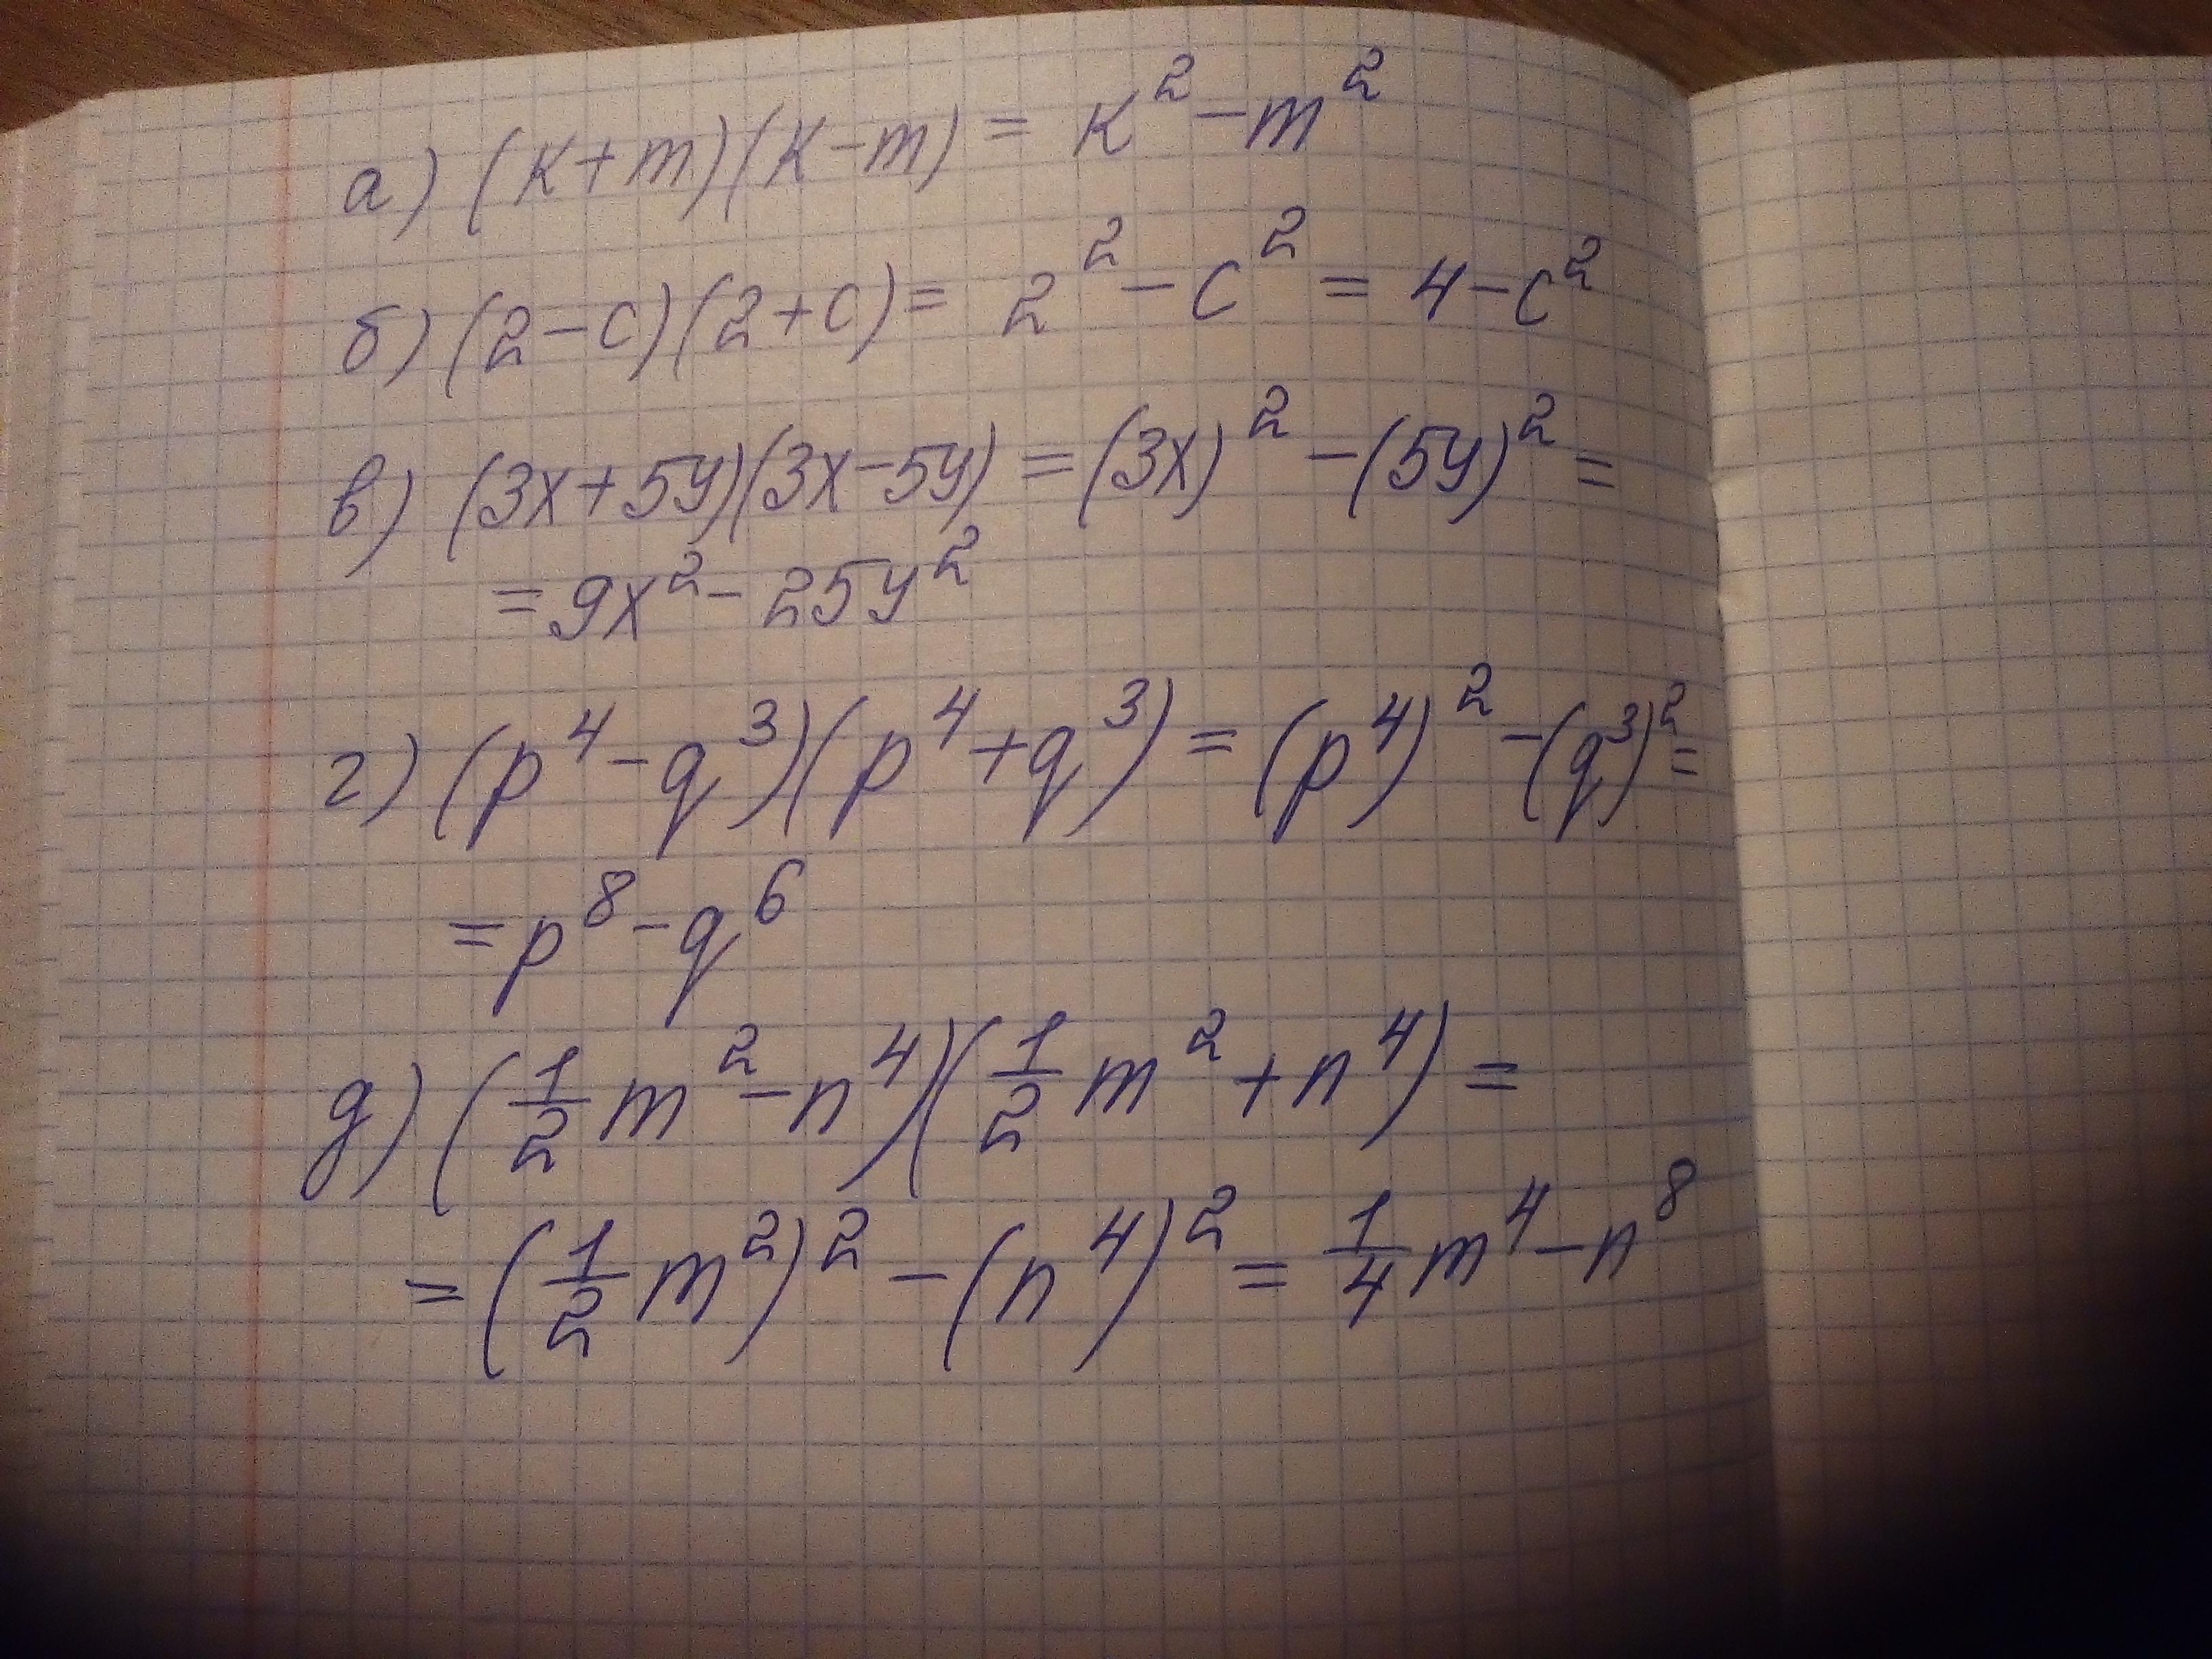 а) (к+m)(к-m) = к² - m²
б) (2-c)(2+c) = 2² - c² = 4 - c²
в) (3x+5y)(3x-5y) = (3x)² - (5y)² =
= 9x² - 25y²
г) (p⁴-q³)(p⁴+q³) = (p⁴)² - (q³)² =
= p⁸ - q⁶
д) (1/2 m² - n⁴)(1/2 m² + n⁴) =
= (1/2 m²)² - (n⁴)² = 1/4 m⁴ - n⁸